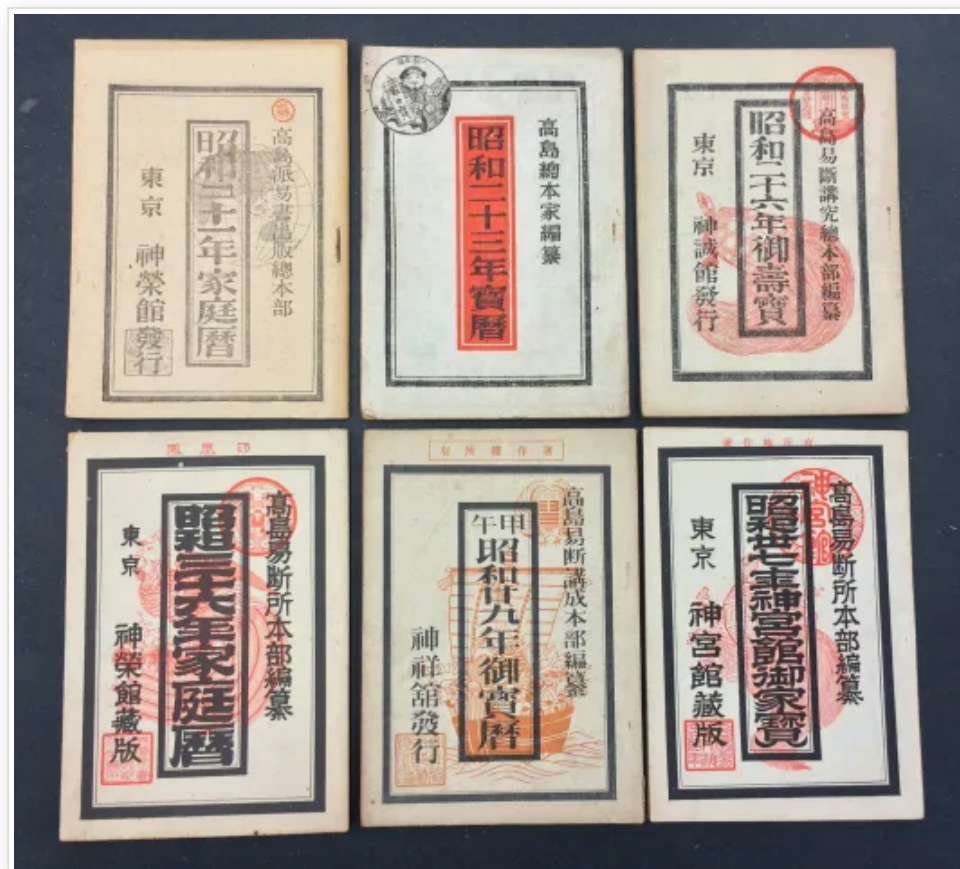 高島派易書出版總本部
昭和二十一年家庭暦
東京 神榮館發行
高島總本家編纂
昭和二十三年寳暦
高島易斷講究總本部編纂
昭和二十六年御壽寳
東京 神誠館發行
高島易断所本部編纂
昭和三十六年家庭暦
東京 神榮館藏版
著作権所有
高島易断講成本部編纂
甲午
昭和廿九年御寳暦
神祥舘發行
高島易断所本部編纂
昭和廿七年神宮館御家寳
東京 神宮館藏版